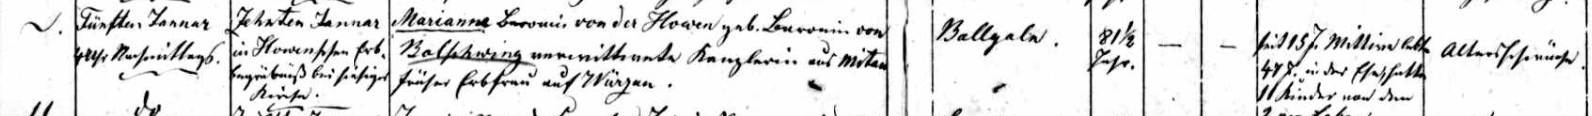 Fünften Januar
4 Uhr Nachmittags.
Zehnten Januar
in Howenschen Erb-
begräbniß bei hiesiger
Kirche.
Marianne Baronin von der Howen geb. Baronin von
Bolschwing verwittwete Kanzlerin aus Mitau
früher Erbfrau auf Würzau.
Ballgaln.
81½
Jahr.
— —
seit 15 J. Wittwe lebte
47 J. in der Ehe, hatte
11 Kinder von dem
Altersschwäche.
do